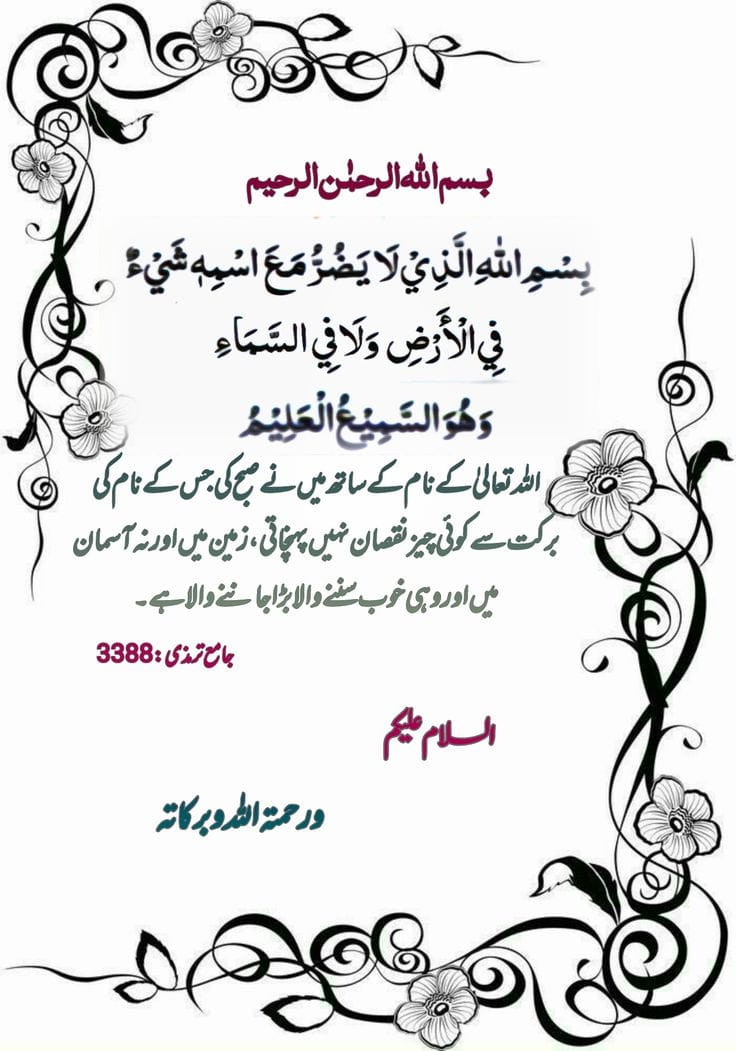 بسم اللہ الرحمٰن الرحیم
بِسْمِ اللهِ الَّذِيْ لَا يَضُرُّ مَعَ اسْمِهٖ شَيْءٌ
فِي الْأَرْضِ وَلَا فِي السَّمَاءِ
وَهُوَ السَّمِيْعُ الْعَلِيْمُ
اللہ تعالیٰ کے نام کے ساتھ میں نے صبح کی جس کے نام کی
برکت سے کوئی چیز نقصان نہیں پہنچاتی، زمین میں اور نہ آسمان
میں اور وہی خوب سننے والا بڑا جاننے والا ہے۔
جامع ترمذی: 3388
السلام علیکم
ورحمتہ اللہ وبرکاتہ